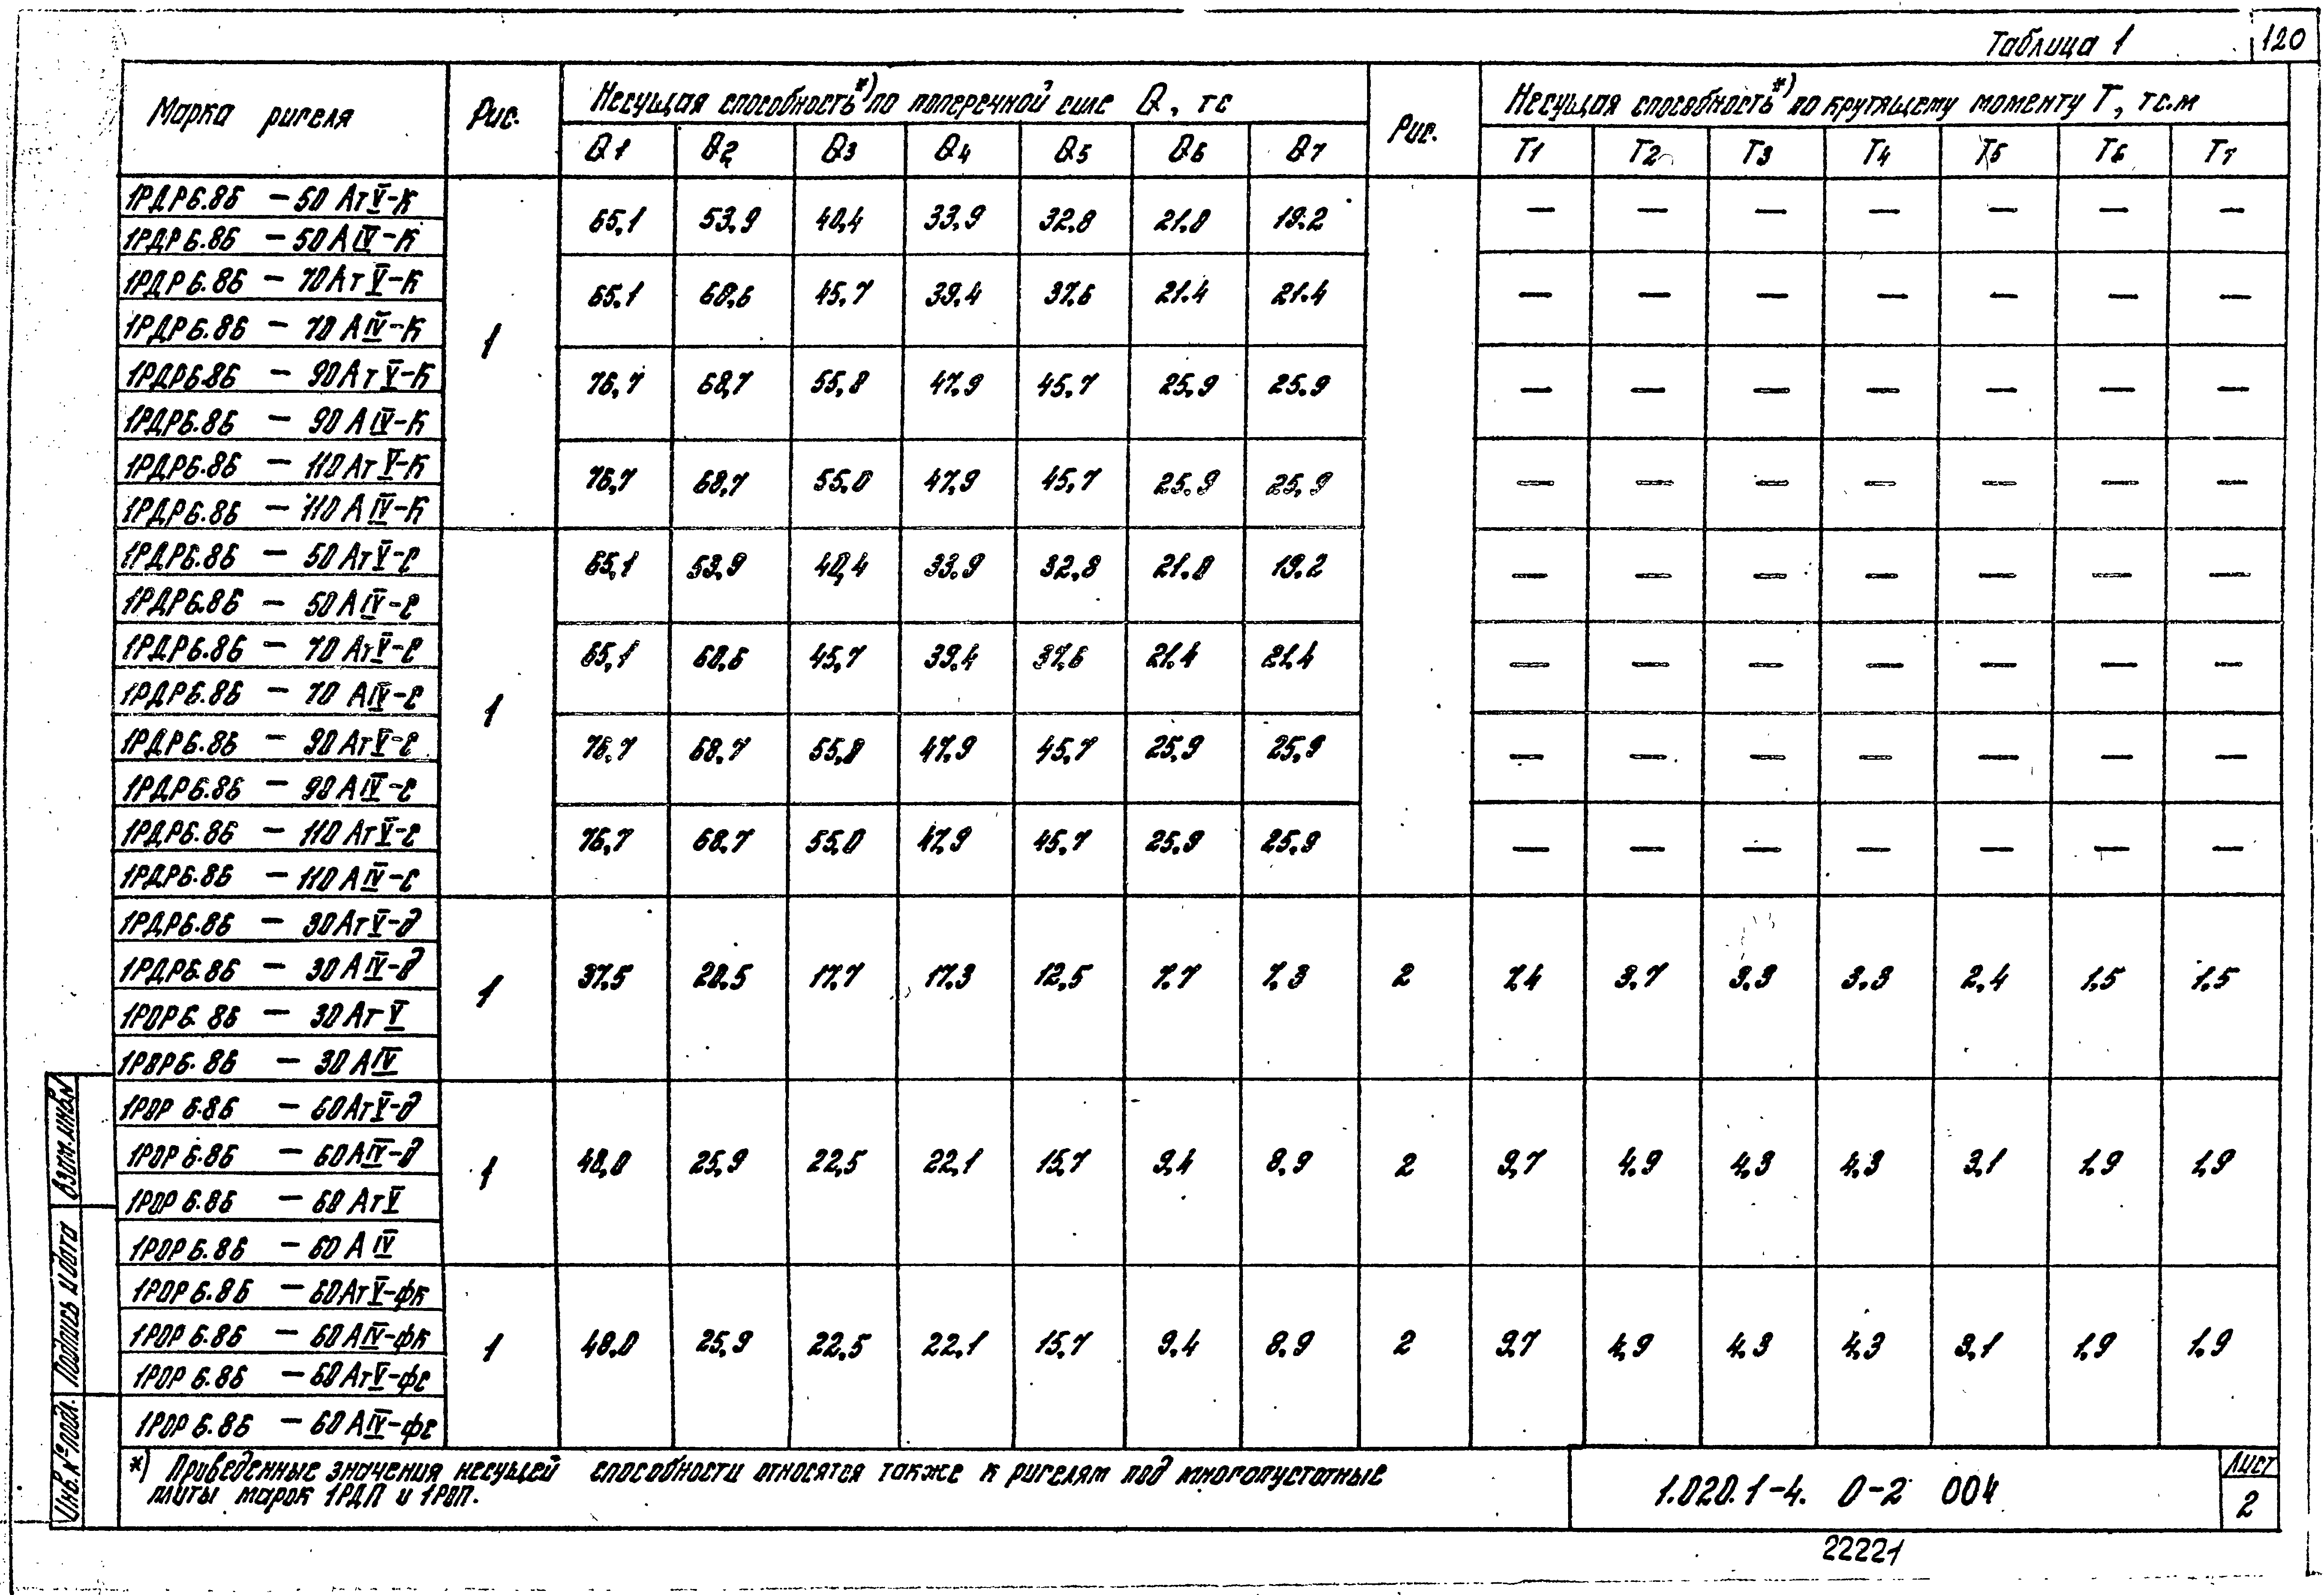 Таблица 1
120
Марка ригеля
Рис.
Несущая способность*) по поперечной силе Q, тс
Рис.
Несущая способность*) по крутящему моменту T, тс.м
Q1 Q2 Q3 Q4 Q5 Q6 Q7
T1 T2 T3 T4 T5 T6 T7
1РДР6.86 - 50 АтV-К
1РДР6.86 - 50 АIV-К
65,1 53,9 40,4 33,9 32.8 21.8 19.2 — — — — — — —
1РДР6.86 - 70 АтV-К
1РДР6.86 - 70 АIV-К
1
65,1 60,6 45,7 39,4 37,6 21.4 21.4 — — — — — — —
1РДР6.86 - 90 АтV-К
1РДР6.86 - 90 АIV-К
76,7 68,7 55,8 47,9 45,7 25,9 25.9 — — — — — — —
1РДР6.86 - 110 АтV-К
1РДР6.86 - 110 АIV-К
76,7 68,7 55.0 47,9 45,7 25,9 25,9 — — — — — — —
1РДР6.86 - 50 АтV-С
1РДР6.86 - 50 АIV-С
65,1 53,9 40,4 33.9 32,8 21.8 19.2 — — — — — — —
1РДР6.86 - 70 АтV-С
1РДР6.86 - 70 АIV-С
1
65,1 60,6 45,7 39,4 37,6 21.4 21.4 — — — — — — —
1РДР6.86 - 90 АтV-С
1РДР6.86 - 90 АIV-С
76,7 68,7 55,8 47,9 45,7 25,9 25,9 — — — — — — —
1РДР6.86 - 110 АтV-С
1РДР6.86 - 110 АIV-С
76,7 68,7 55,0 47,9 45,7 25,9 25,9 — — — — — — —
1РДР6.86 - 30 АтV-д
1РДР6.86 - 30 АIV-д
1РОР6.86 - 30 АтV
1РОР6.86 - 30 АIV
1 37,5 20.5 17,7 17,3 12,5 7.7 7,3 2 7,4 3,7 3.3 3.3 2,4 1,5 1,5
1РОР 6.86 - 60 АтV-д
1РОР 6.86 - 60 АIV-д
1РОР 6.86 - 60 АтV
1РОР 6.86 - 60 АIV
1 48,0 25,9 22,5 22,1 15,7 9,4 8,9 2 9,7 4,9 4,3 4,3 3,1 1,9 1,9
1РОР 6.86 - 60 АтV-фк
1РОР 6.86 - 60 АIV-фк
1РОР 6.86 - 60 АтV-фс
1РОР 6.86 - 60 АIV-фс
1 48.0 25,9 22,5 22,1 15,7 9,4 8,9 2 9,7 4,9 4,3 4,3 3,1 1,9 1,9
*) Приведенные значения несущей способности относятся также к ригелям под многопустотные
плиты марок 1РДП и 1РОП.
1.020.1-4. 0-2 004
Лист
2
22221
Взам.инв.№
Подпись и дата
Инв.№подл.